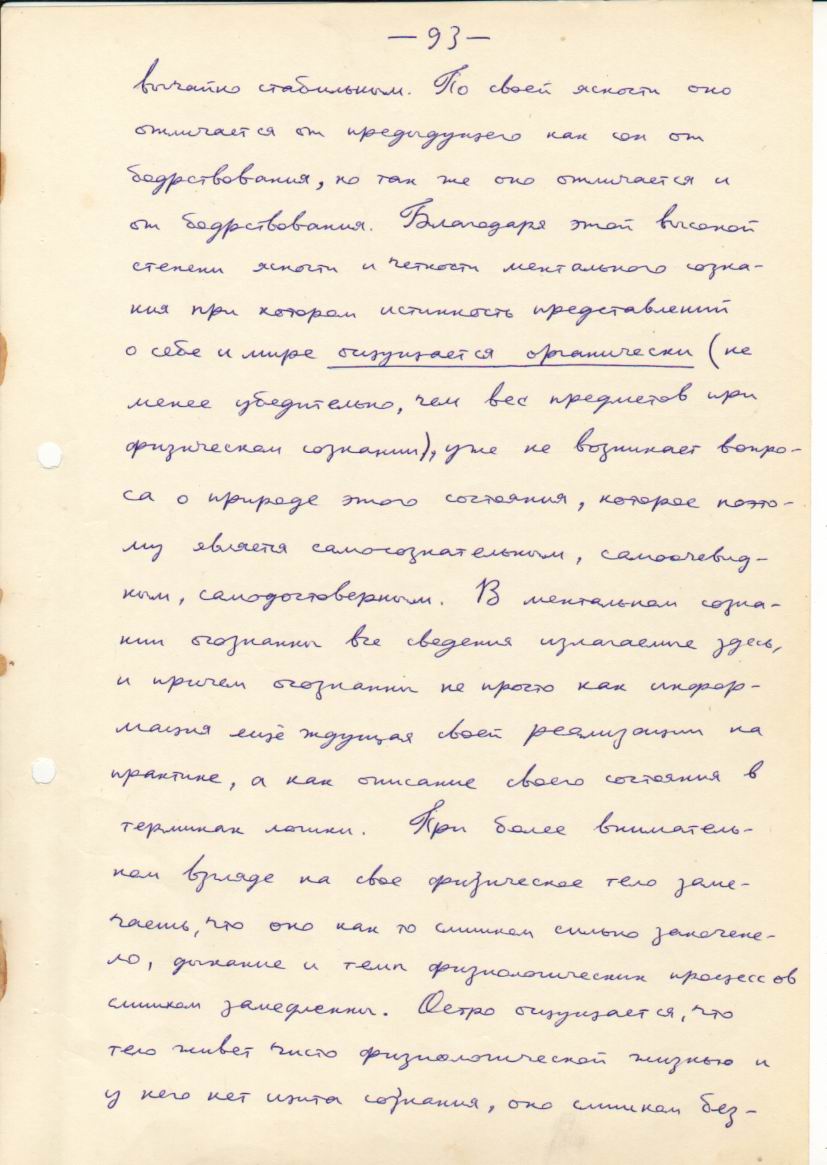 — 93 —
вычайно стабильным. По своей ясности оно
отличается от предыдущего как сон от
бодрствования, но так же оно отличается и
от бодрствования. Благодаря этой высокой
степени ясности и четкости ментального созна-
ния при котором истинность представлений
о себе и мире ощущается органически (не
менее убедительно, чем вес предметов при
физическом сознании), уже не возникает вопро-
са о природе этого состояния, которое поэто-
му является самосознательным, самоочевид-
ным, самодостоверным. В ментальном созна-
нии осознанны все сведения излагаемые здесь,
и причем осознанны не просто как инфор-
мация ещё ждущая своей реализации на
практике, а как описание своего состояния в
терминах логики. При более вниматель-
ном взгляде на свое физическое тело заме-
чаешь, что оно как то слишком сильно закочене-
ло, дыхание и темп физиологических процессов
слишком замедленны. Остро ощущается, что
тело живет чисто физиологической жизнью и
у него нет щита сознания, оно слишком без-